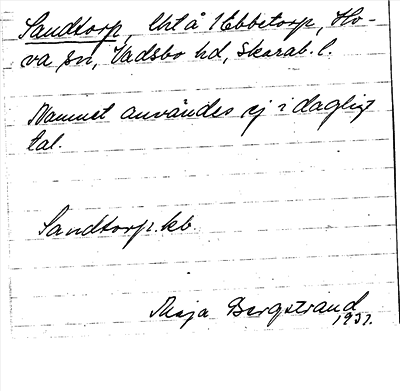 Sandtorp, lht å 1 Ebbetorp, Ho-
va sn, Vadsbo hd, Skarab. l.
Namnet användes ej i dagligt
tal.
Sandtorp. kb.
Maja Bergstrand
1931.